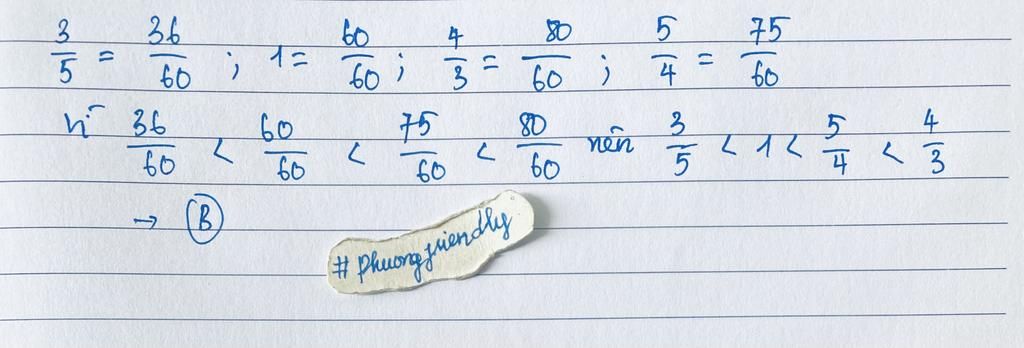 3/5 = 36/60 ; 1 = 60/60 ; 4/3 = 80/60 ; 5/4 = 75/60
Vì 36/60 < 60/60 < 75/60 < 80/60 nên 3/5 < 1 < 5/4 < 4/3
→ B
#phuongfriendly